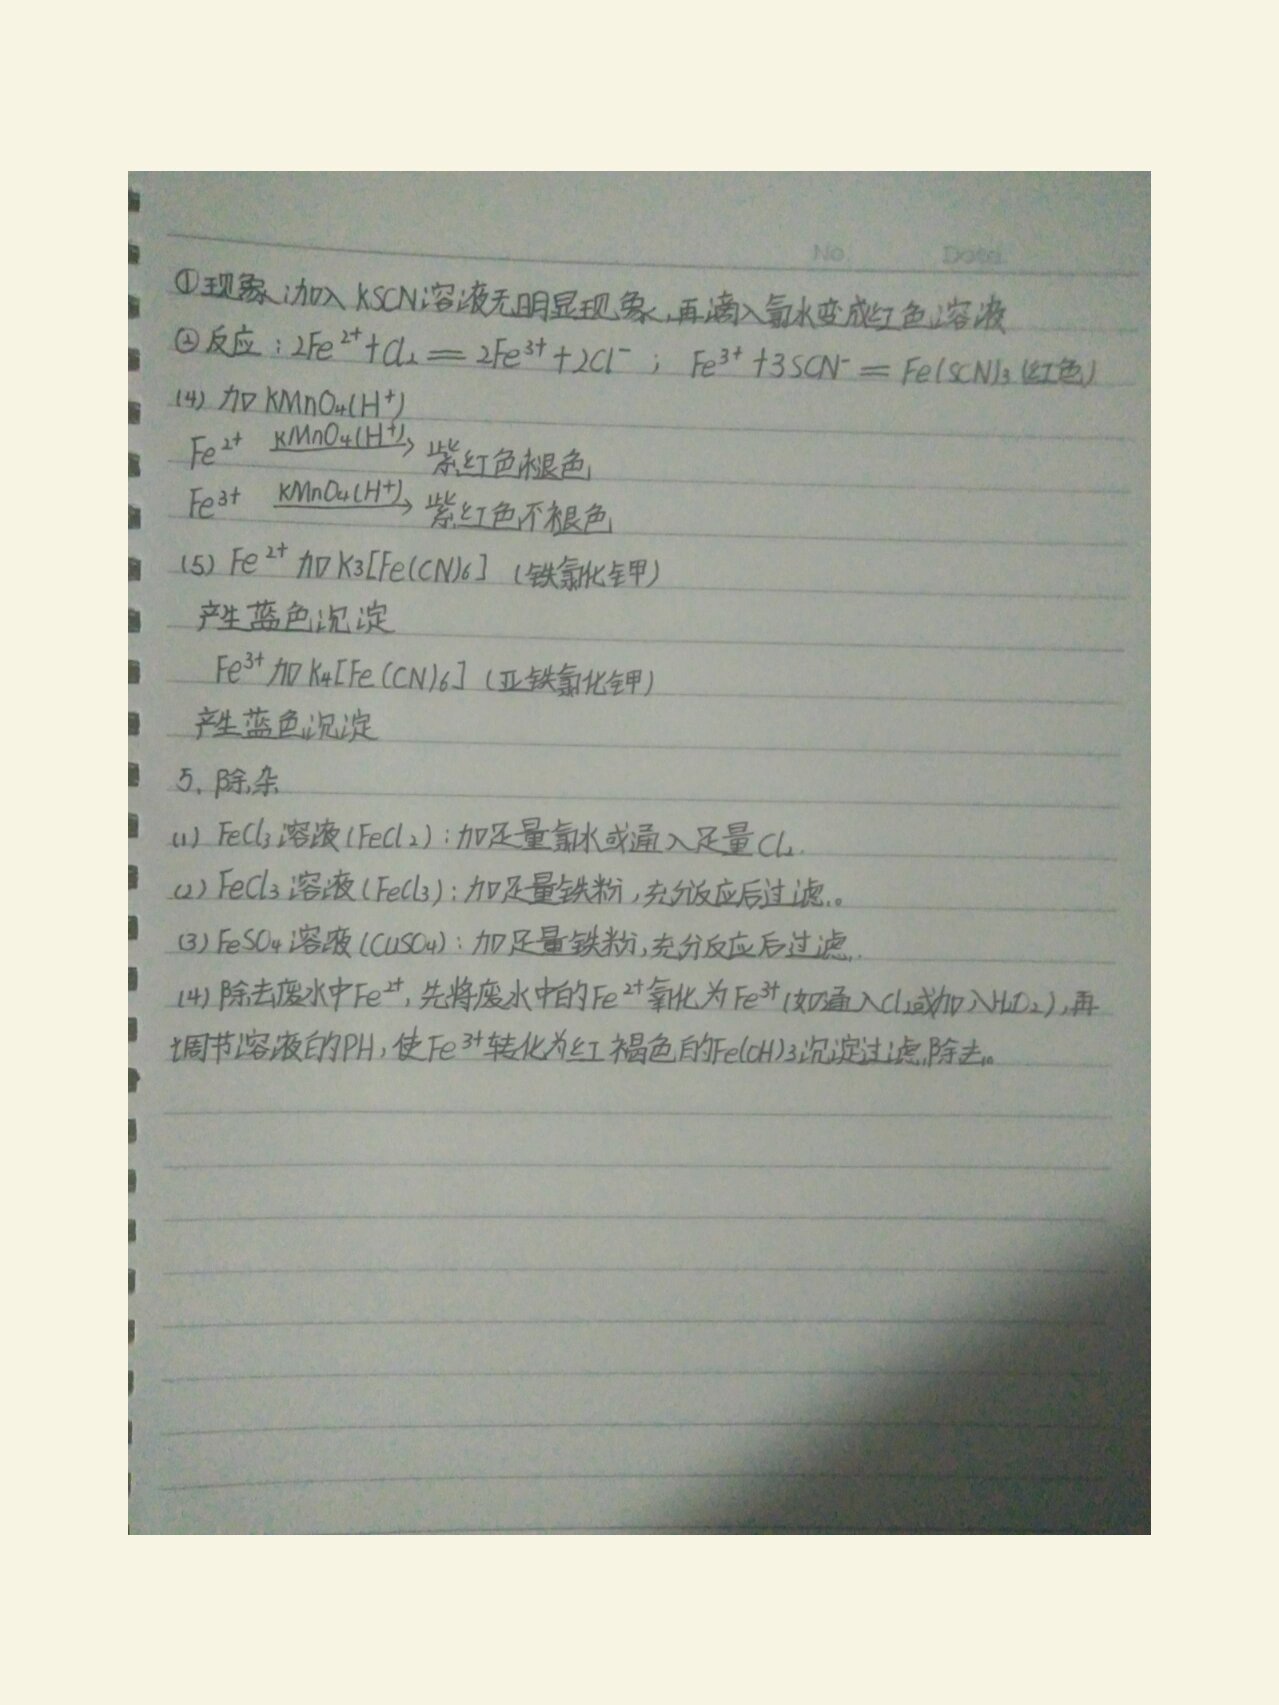 No Date
①现象:加入KSCN溶液无明显现象,再滴入氯水变成红色溶液
②反应:2Fe²⁺+Cl₂=2Fe³⁺+2Cl⁻;Fe³⁺+3SCN⁻=Fe(SCN)₃(红色)
(4)加KMnO₄(H⁺)
Fe²⁺ KMnO₄(H⁺)→ 紫红色褪色
Fe³⁺ KMnO₄(H⁺)→ 紫红色不褪色
(5)Fe²⁺加K₃[Fe(CN)₆](铁氰化钾)
产生蓝色沉淀
Fe³⁺加K₄[Fe(CN)₆](亚铁氰化钾)
产生蓝色沉淀
5.除杂
(1)FeCl₃溶液(FeCl₂):加足量氯水或通入足量Cl₂.
(2)FeCl₃溶液(FeCl₃):加足量铁粉,充分反应后过滤。
(3)FeSO₄溶液(CuSO₄):加足量铁粉,充分反应后过滤.
(4)除去废水中Fe²⁺,先将废水中的Fe²⁺氧化为Fe³⁺(如通入Cl₂或加入H₂O₂),再
调节溶液的PH,使Fe³⁺转化为红褐色的Fe(OH)₃沉淀过滤除去。